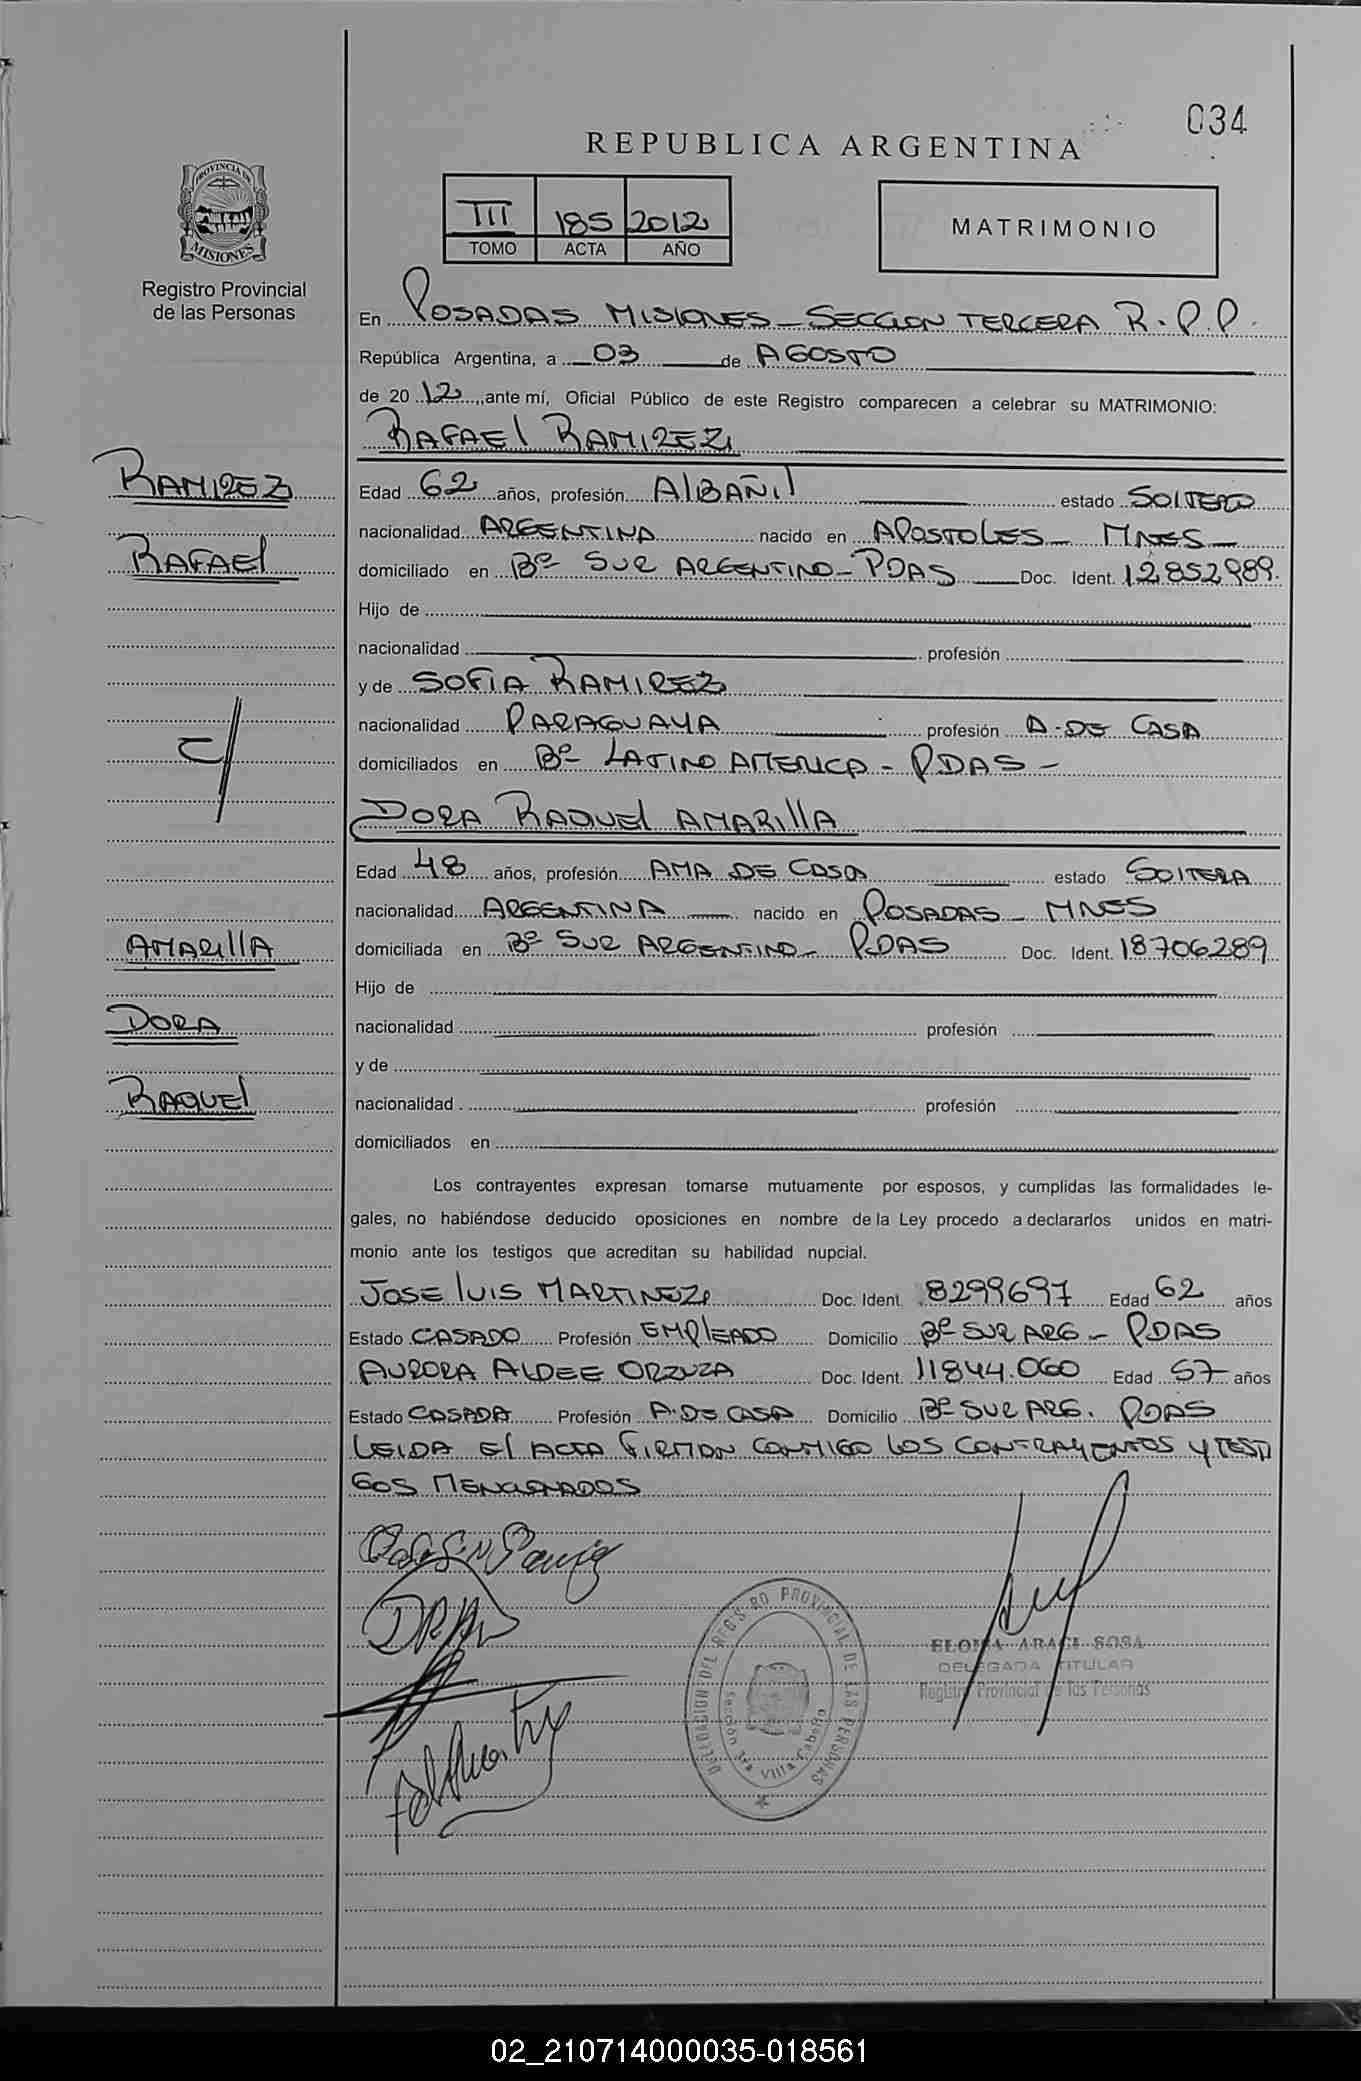 034
REPUBLICA ARGENTINA
PROVINCIA DE
MISIONES
III 185 2012
TOMO ACTA AÑO
MATRIMONIO
Registro Provincial
de las Personas
En POSADAS MISIONES - SECCION TERCERA R.P.P.
República Argentina, a 03 de AGOSTO
de 2012, ante mí, Oficial Público de este Registro comparecen a celebrar su MATRIMONIO:
RAFAEL RAMIREZ
RAMIREZ
RAFAEL
Edad 62 años, profesión ALBAÑIL estado SOLTERO
nacionalidad ARGENTINA nacido en APOSTOLES - MNES -
domiciliado en Bº SUR ARGENTINO - PDAS Doc. Ident. 12.852.989.
Hijo de
nacionalidad profesión
y de SOFIA RAMIREZ
nacionalidad PARAGUAYA profesión A. DE CASA
domiciliados en Bº LATINO AMERICA - PDAS -
DORA RAQUEL AMARILLA
AMARILLA
DORA
RAQUEL
Edad 48 años, profesión AMA DE CASA estado SOLTERA
nacionalidad ARGENTINA nacido en POSADAS - MNES
domiciliada en Bº SUR ARGENTINO - PDAS Doc. Ident. 18706289
Hijo de
nacionalidad profesión
y de
nacionalidad profesión
domiciliados en
Los contrayentes expresan tomarse mutuamente por esposos, y cumplidas las formalidades le-
gales, no habiéndose deducido oposiciones en nombre de la Ley procedo a declararlos unidos en matri-
monio ante los testigos que acreditan su habilidad nupcial.
JOSE LUIS MARTINEZ Doc. Ident. 8299697 Edad 62 años
Estado CASADO Profesión EMPLEADO Domicilio Bº SUR ARG - PDAS
AURORA ALDEE ORZUZA Doc. Ident. 11844.060 Edad 57 años
Estado CASADA Profesión A. DE CASA Domicilio Bº SUR ARG. PDAS
LEIDA EL ACTA FIRMAN CONMIGO LOS CONTRAYENTES Y TESTI
GOS MENCIONADOS
DELEGACION DEL REGISTRO PROVINCIAL DE LAS PERSONAS
Sección 3ra Villa Cabello
ELOISA ARACI SOSA
DELEGADA TITULAR
Registro Provincial de las Personas
02_210714000035-018561